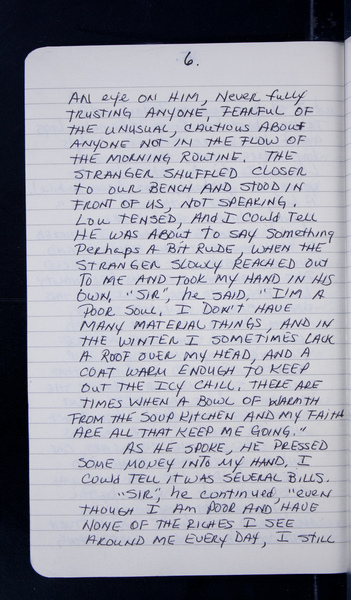 6.
AN eye ON HIM, Never fully
TRUSTING ANYONE, FEARFUL OF
THE UNUSUAL, CAUTIOUS ABOUT
ANYONE NOT IN THE FLOW OF
THE MORNING ROUTINE. THE
STRANGER SHUFFLED CLOSER
TO OUR BENCH AND STOOD IN
FRONT OF US, NOT SPEAKING.
LOU TENSED, AND I COULD TELL
HE WAS ABOUT TO SAY SOMETHING
PERHAPS A BIT RUDE, WHEN THE
STRANGER SLOWLY REACHED OUT
TO ME AND TOOK MY HAND IN HIS
OWN. "SIR", he SAID, "I'M A
POOR SOUL. I DON'T HAVE
MANY MATERIAL THINGS, AND IN
THE WINTER I SOMETIMES LACK
A ROOF OVER MY HEAD, AND A
COAT WARM ENOUGH TO KEEP
OUT THE ICY CHILL. THERE ARE
TIMES WHEN A BOWL OF WARMTH
FROM THE SOUP KITCHEN AND MY FAITH
ARE ALL THAT KEEP ME GOING."
AS HE SPOKE, HE PRESSED
SOME MONEY INTO MY HAND. I
COULD TELL IT WAS SEVERAL BILLS.
"SIR", he CONTINUED, "even
THOUGH I AM POOR AND HAVE
NONE OF THE RICHES I SEE
AROUND ME EVERY DAY, I STILL